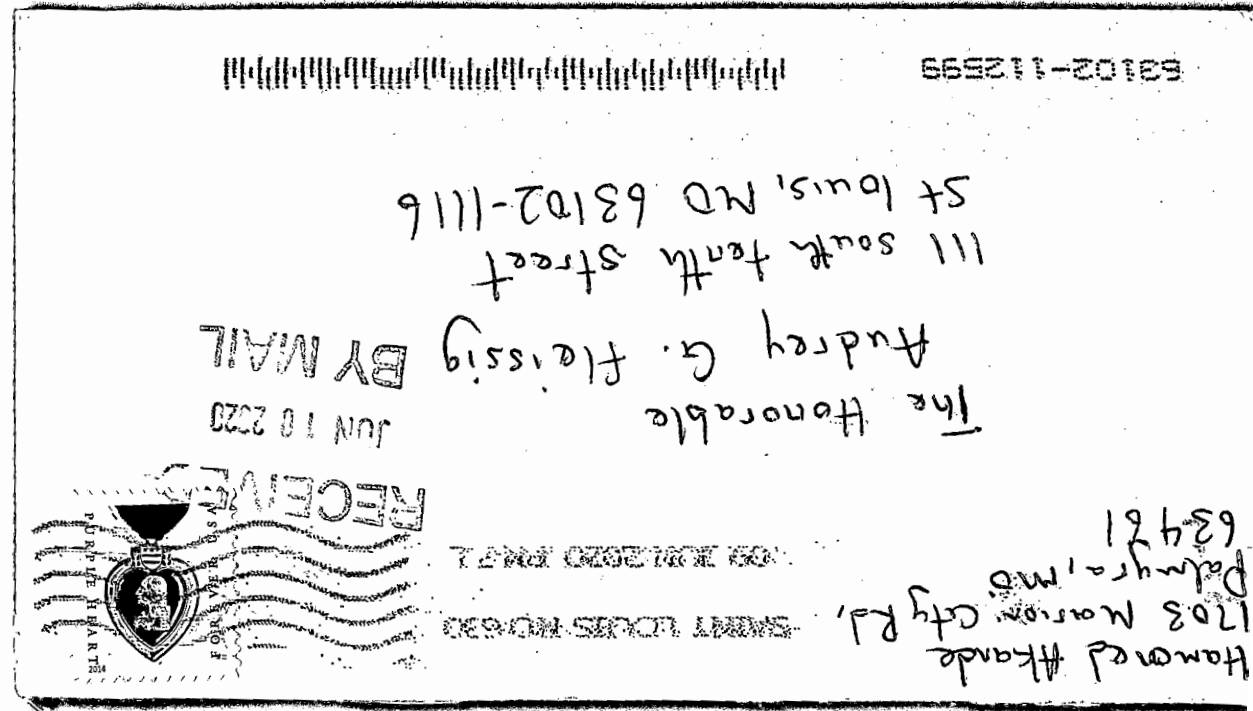 Akande
1703 Marion City Rd,
Palmyra, MO
63461
SAINT LOUIS MO 630
09 JUN 2020 PM 7 L
PURPLE HEART
FOREVER USA
2014
RECEIVED
JUN 10 2020
BY MAIL
The Honorable
Audrey G. fleissig
111 South tenth street
St louis, MO 63102-1116
63102-112599